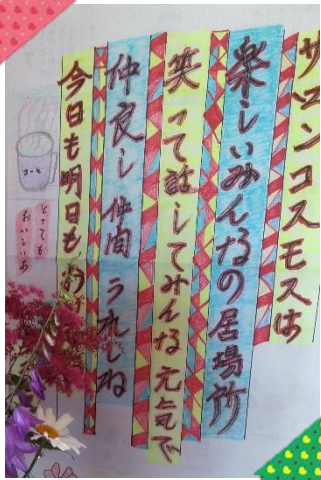 サロンコスモスは
楽しいみんなの居場所
笑って話してみんな元気で
仲良し仲間うれしね
今日も明日も
コーヒ
とっても
おいしいね